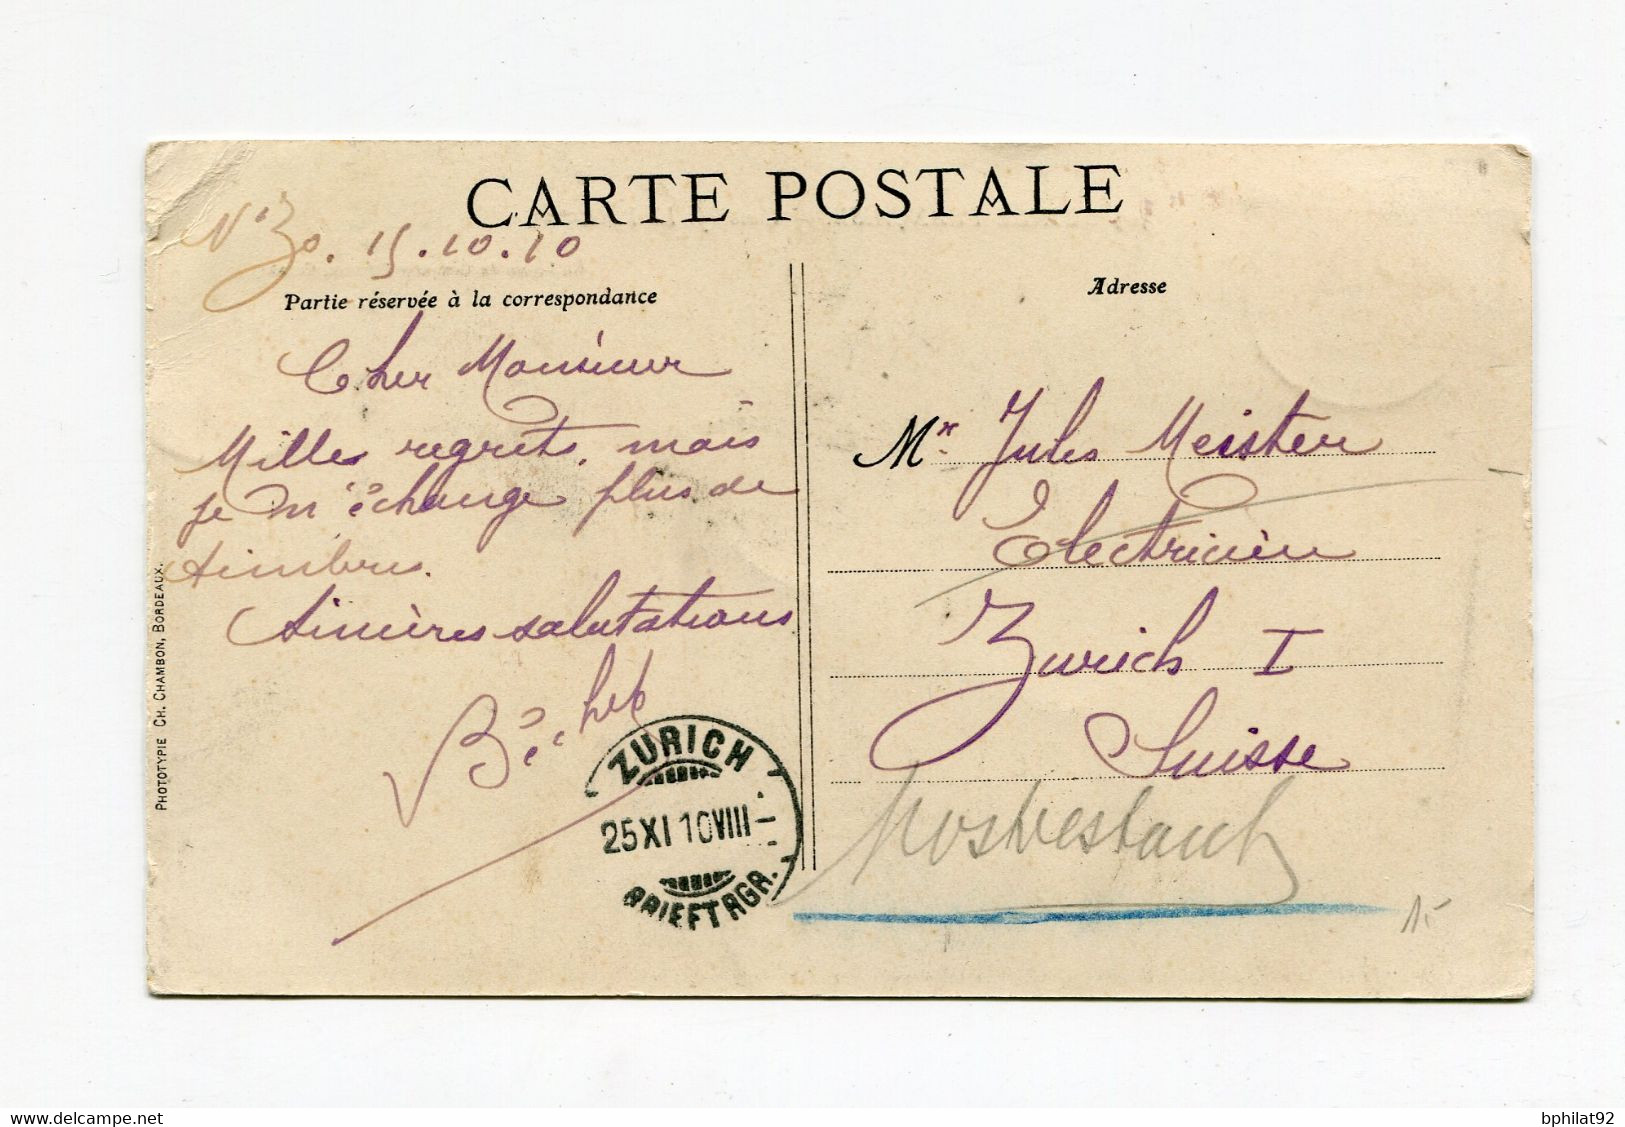 CARTE POSTALE
N'Zo. 15.10.10
Partie réservée à la correspondance
Cher Monsieur
Milles regrets, mais
je m'échange plus de
timbres.
Sincères salutations
Béchet
Adresse
Mr. Jules Meister
Electricien
Zurich I
Suisse
ZURICH
25 XI 10 VIII -
BRIEFTRGR.
PHOTOTYPIE CH. CHAMBON, BORDEAUX.
15
delcampe.net
bphilat92